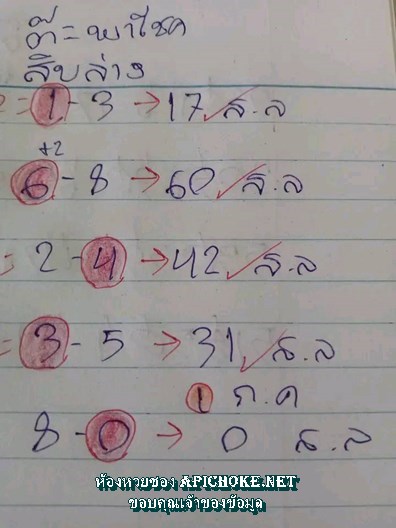 ต๊ะ=พาโชค
สิบล่าง
2=1-3→17✓ส.ล
+2
6-8→60✓ส.ล
=2-4→42✓ส.ล
=3-5→31✓ส.ล
1 ก.ค
8-0→0 ส.ล
ห้องหวยซอง APICHOKE.NET
ขอบคุณเจ้าของข้อมูล